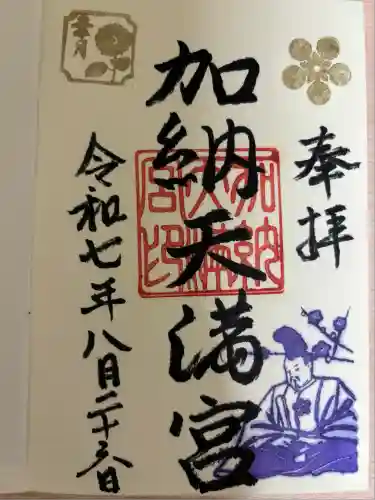 奉拝
加納天満宮
加納
天満
宮印
葉月
令和七年八月二十六日